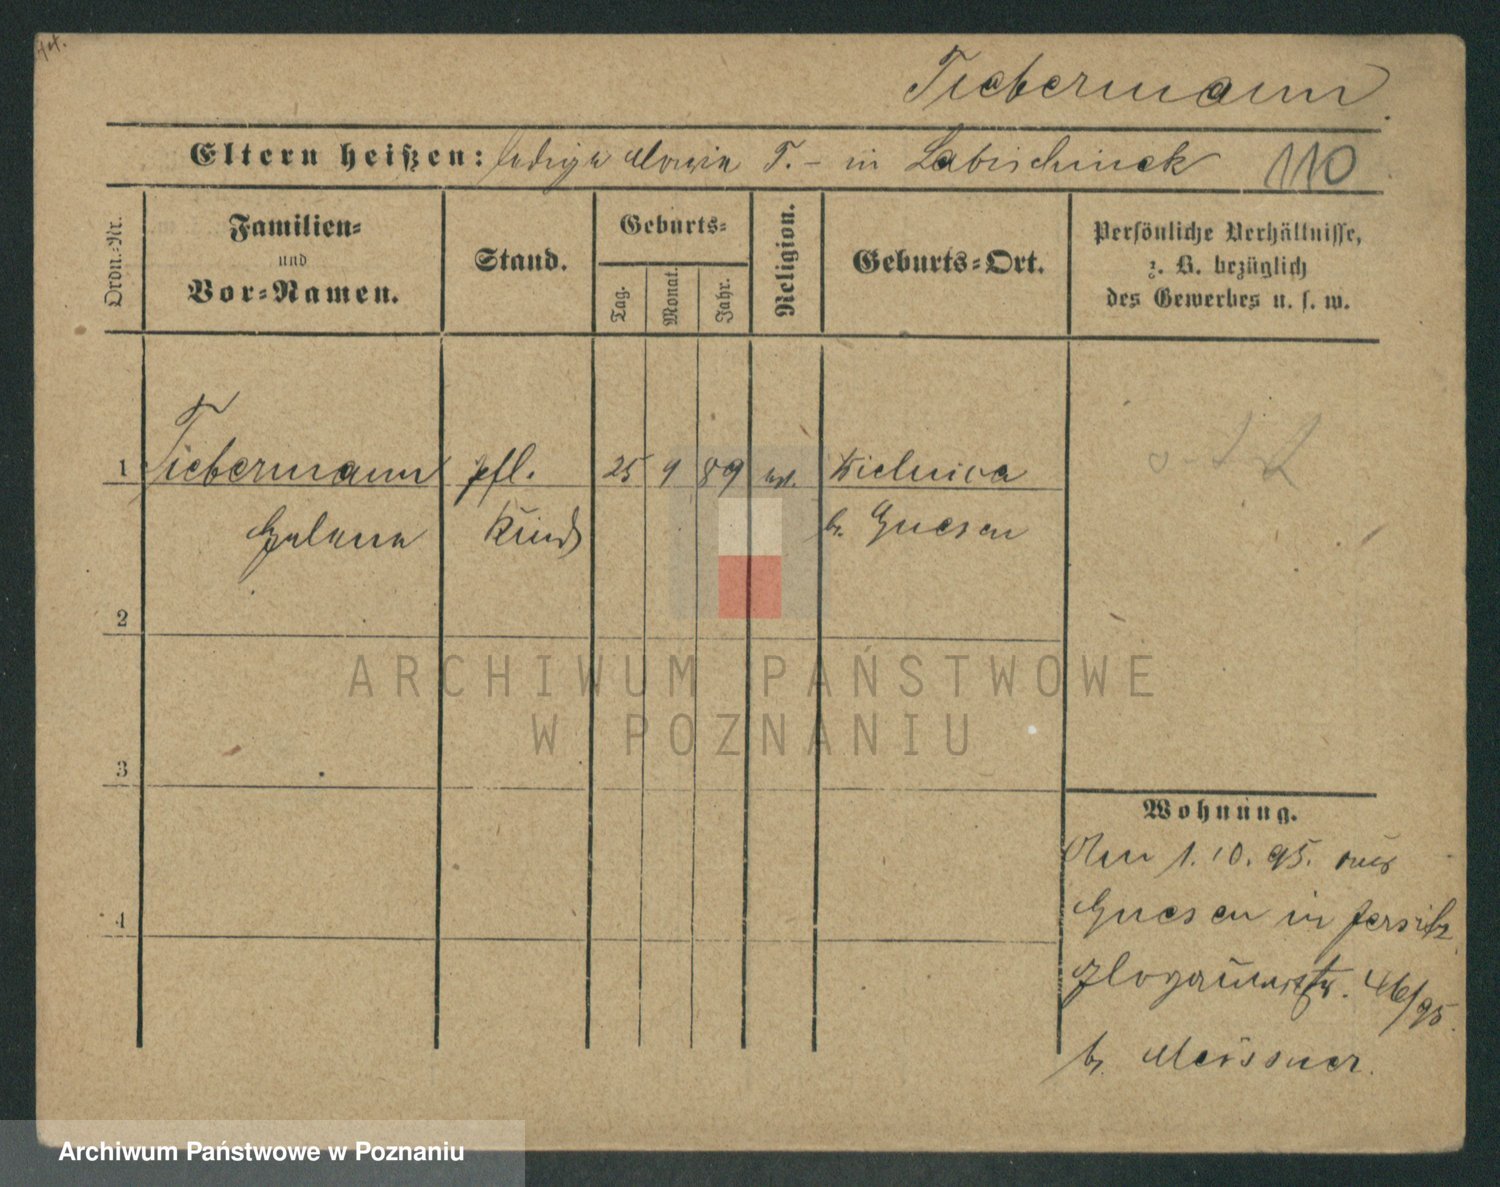 Tiebermann
Eltern heißen: ledige Maria T. - in Labischinek 110
Ordn.-Nr.
Familien-
und
Vor-Namen.
Stand.
Geburts-
Tag.
Monat.
Jahr.
Religion.
Geburts-Ort.
Persönliche Verhältnisse,
z. B. bezüglich
des Gewerbes u. s. w.
1 Tiebermann pfl. 25 9 89 Kielnica
Helena Kind b. Gnesen
2
3
4
Wohnung.
Am 1.10.95. aus
Gnesen in Jersitz
46/95.
b. Meissner.
ARCHIWUM PAŃSTWOWE
W POZNANIU
Archiwum Państwowe w Poznaniu